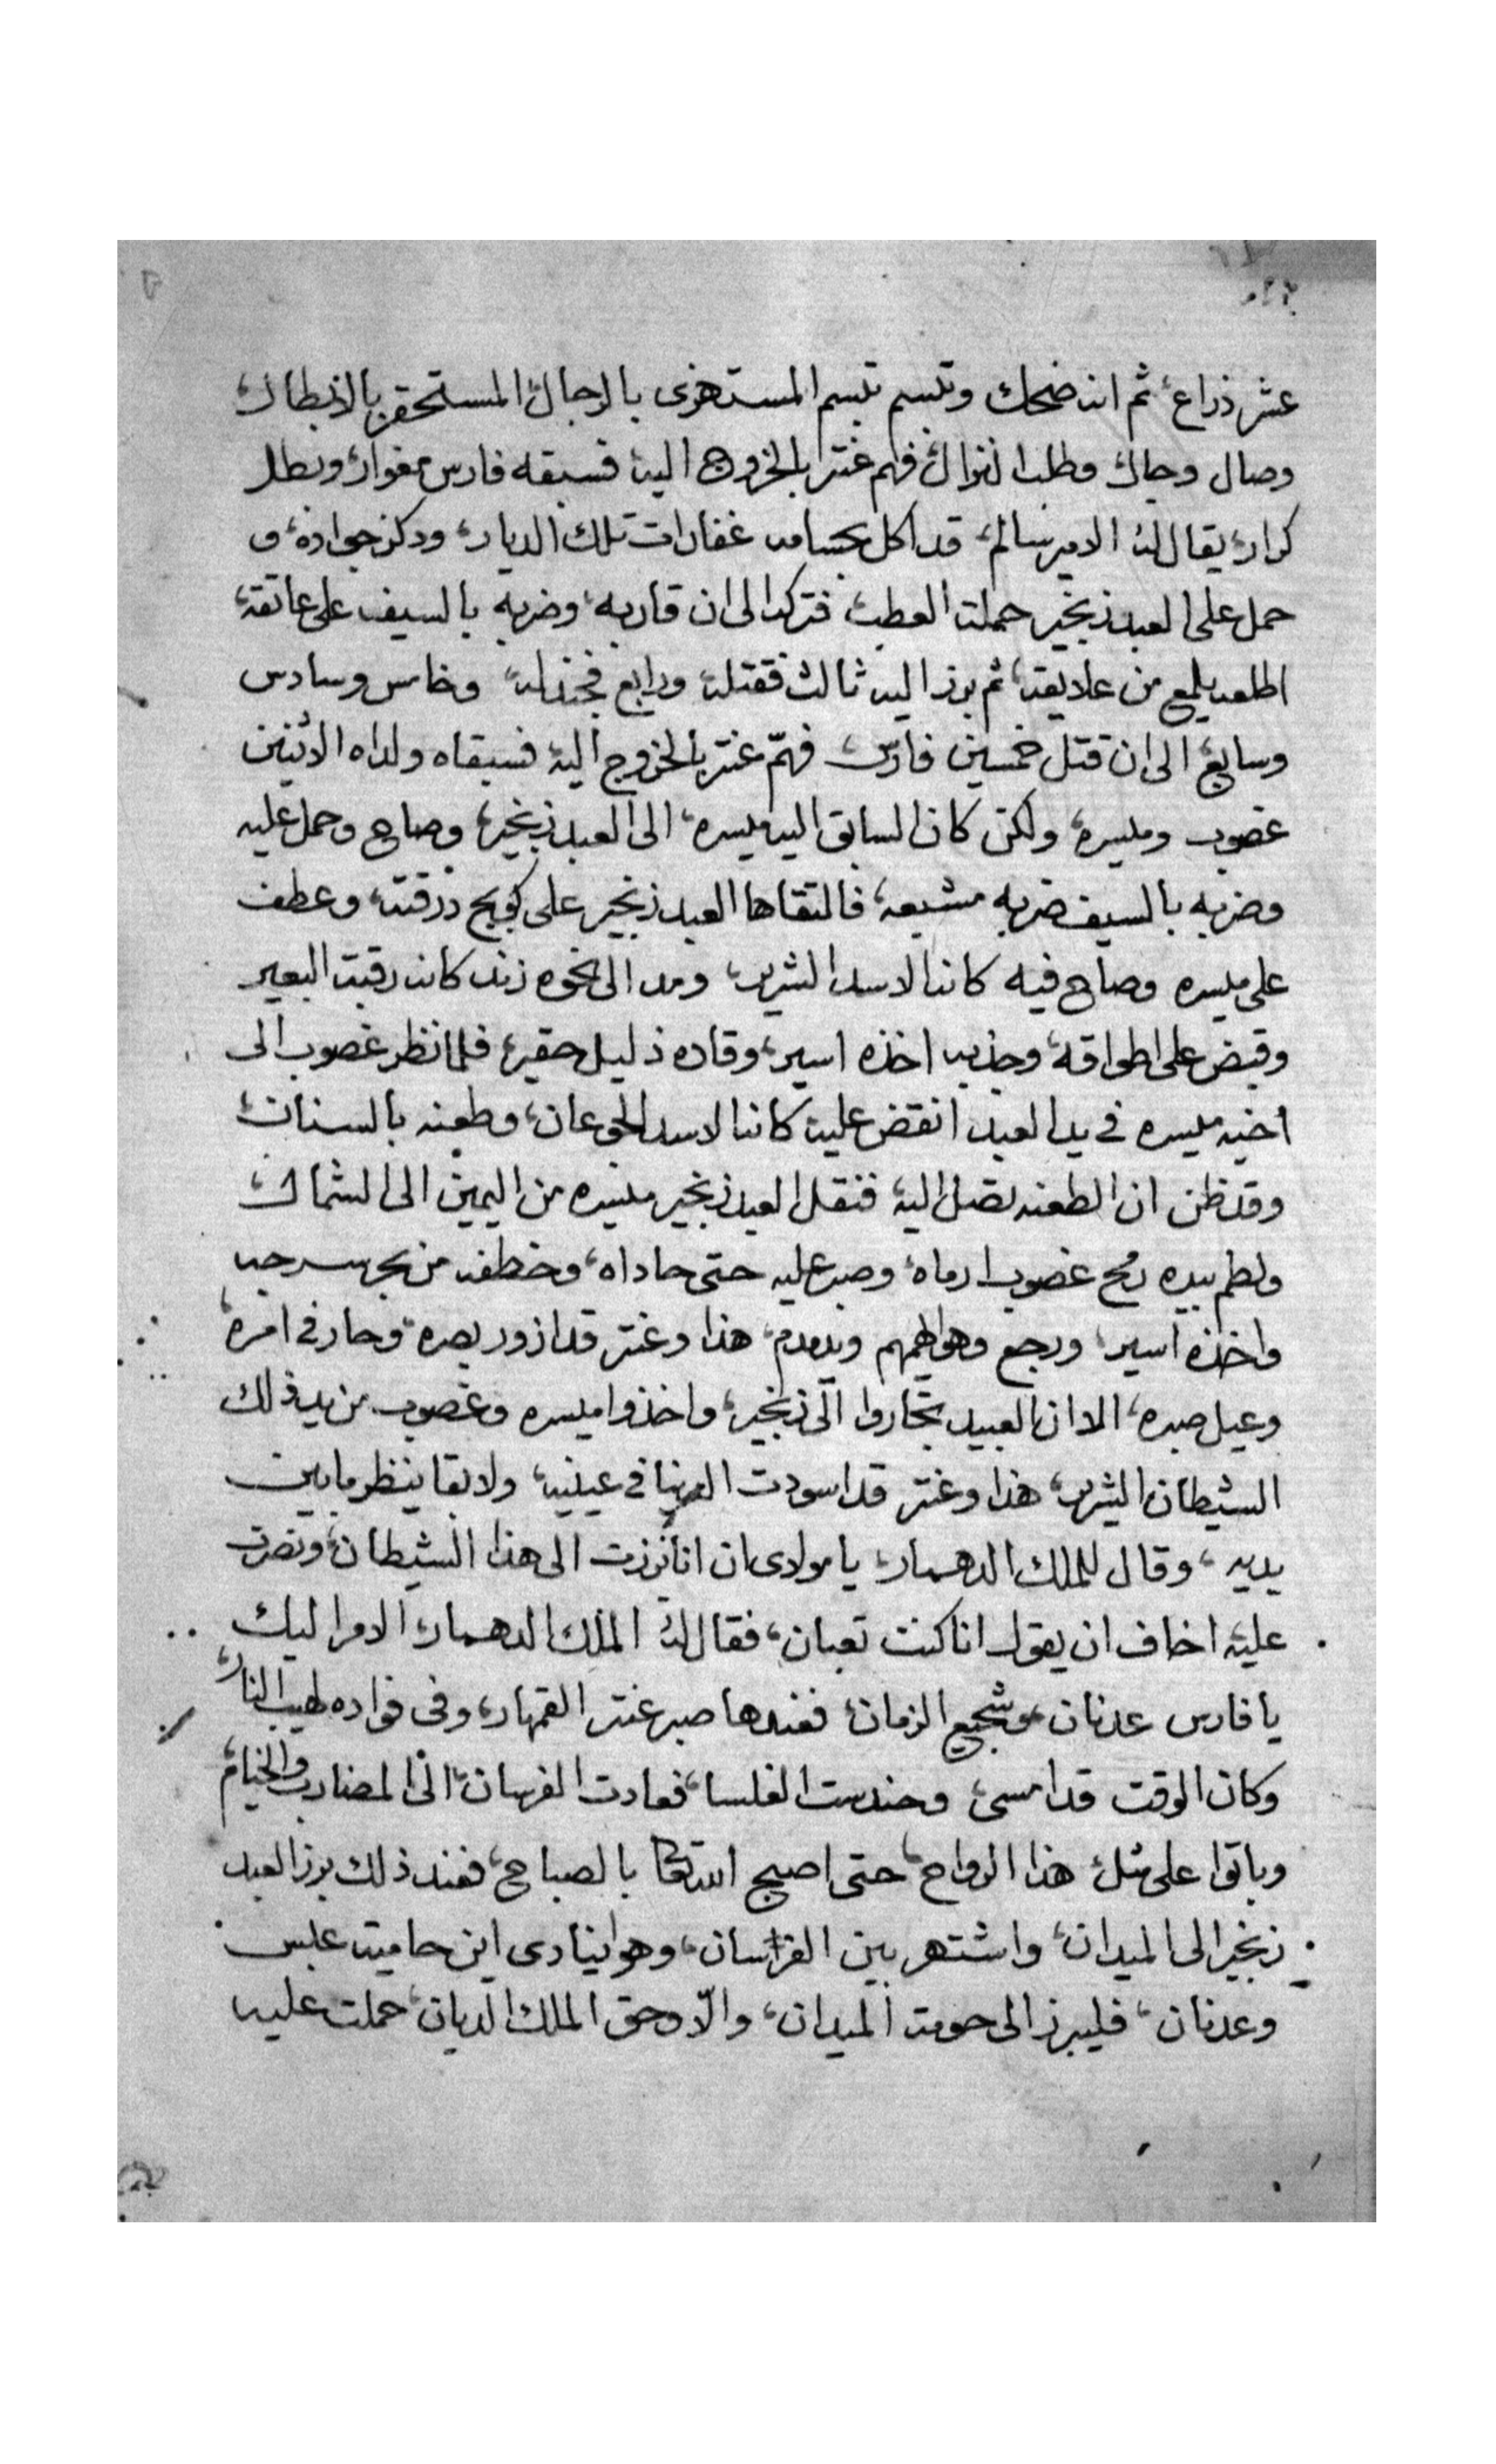 عشر ذراع، ثم انه ضحك وتبسم تبسم المستهزى بالرجال المستحقر بالابطال
وصال وجال وطلب النزال فهم عنتر بالخروج اليه فسبقه فارس مغوار وبطل
كرار، يقال له الامير سالم، قد اكل بحسامه غفارات تلك الديار، ودكز جواده، و
حمل على العبد زنجير حملت العطب، فتركه الى ان قاربه، وضربه بالسيف على عاتقه،
اطلعه يلمع من علايقه، ثم برز اليه ثالث فقتله ورابع فجندله، وخامس وسادس
وسابع الى ان قتل خمسين فارس، فهمّ عنتر بالخروج اليه فسبقاه ولداه الاثنين
غصوب وميسره، ولكن كان السابق اليه ميسره، الى العبد زنجير، وصاح وحمل عليه
وضربه بالسيف ضربه مشبعه، فالتقاها العبد زنجير على درقته، وعطف
على ميسره وصاح فيه كانه الاسد الشرير، ومد الى نحوه زند كانه رقبت البعير
وقبض على اطواقه، وجذبه اخذه اسير، وقاده ذليل حقير، فلما نظر غصوب الى
اخيه ميسره في يد العبد انقض عليه كانه الاسد الجوعان، وطعنه بالسنان
وقد ظن ان الطعنه تصل اليه فنقل العبد زنجير ميسره من اليمين الى الشمال
ولطم بيده رمح غصوب ارماه، وصبر عليه حتى حاداه، وخطفه من بحر سرجه
واخذه اسير، ورجع وهو يهمهم ويدمدم، هذا وعنتر قد ازور بصره، وحار في امره،
وعيل صبره، الا ان العبيد تجاروا الى زنجير، واخذوا ميسره وغصوب من يد ذلك
الشيطان الشرير، هذا وعنتر قد اسودت الدنيا في عينيه، ولا بقا ينظر ما بين
يديه، وقال للملك الدهمار، يا مولاى ان انا برزت الى هذا الشيطان، ونصرت
عليه اخاف ان يقول انا كنت تعبان، فقال له الملك الدهمار، الامر اليك
يا فارس عدنان، وشجيع الزمان، فعندها صبر عنتر القهار، وفى فواده لهيب النار،
وكان الوقت قد امسى، وحندست الغلسا، فعادت الفرسان، الى المضارب والخيام،
وباتوا على مثل هذا الرواح، حتى اصبح الله تعا بالصباح، فعند ذلك برز العبد
زنجير الى الميدان، واشتهر بين الفرسان، وهو اينادى اين حاميت عبس
وعدنان، فليبرز الى حومت الميدان، والّا وحق الملك الديان، حملت عليه